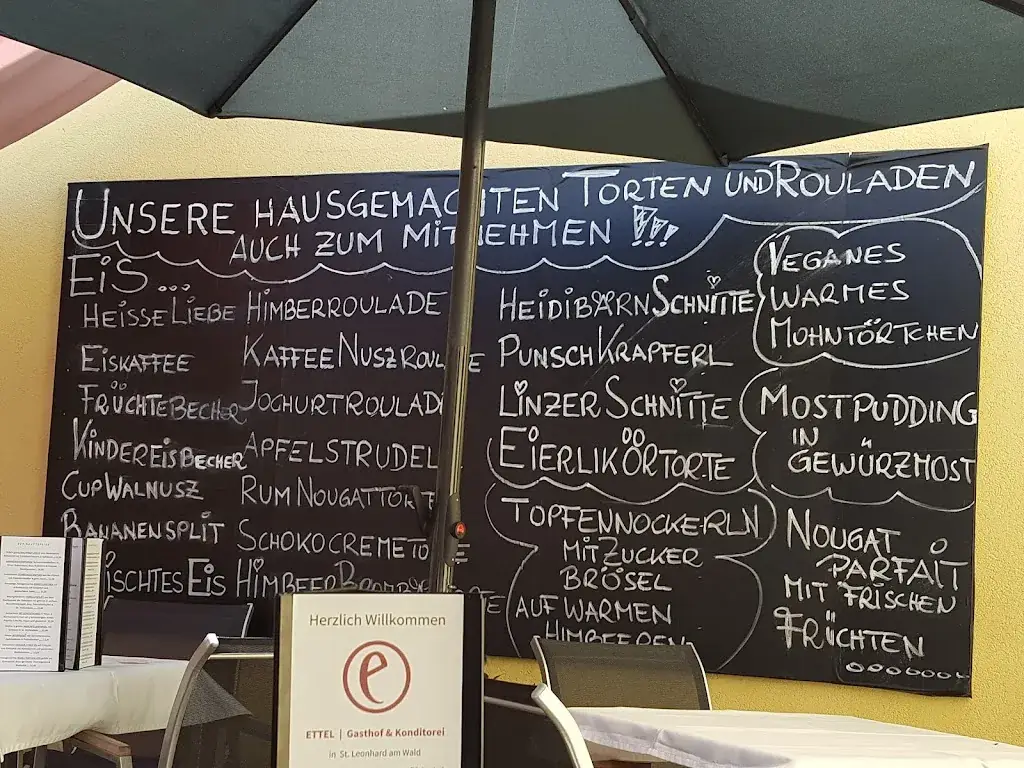 UNSERE HAUSGEMACHTEN TORTEN UND ROULADEN
AUCH ZUM MITNEHMEN !!!
EIS...
HEISSE LIEBE
EISKAFFEE
FRÜCHTEBECHER
KINDEREISBECHER
CUP WALNUSZ
BANANENSPLIT
ISCHTES EIS
HIMBERROULADE
KAFFEE NUSZ ROUL E
JOGHURTROULAD
APFELSTRUDEL
RUM NOUGATTORT
SCHOKOCREMETO E
HIMBEER
HEIDIBÄRN SCHNITTE
PUNSCHKRAPFERL
LINZER SCHNITTE
EIERLIKÖRTORTE
TOPFENNOCKERLN
MIT ZUCKER
BRÖSEL
AUF WARMEN
HIMBEEREN
VEGANES
WARMES
MOHNTÖRTCHEN
MOSTPUDDING
IN
GEWÜRZMOST
NOUGAT
PARFAIT
MIT FRISCHEN
FRÜCHTEN
Herzlich Willkommen
e
ETTEL | Gasthof & Konditorei
in St. Leonhard am Wald